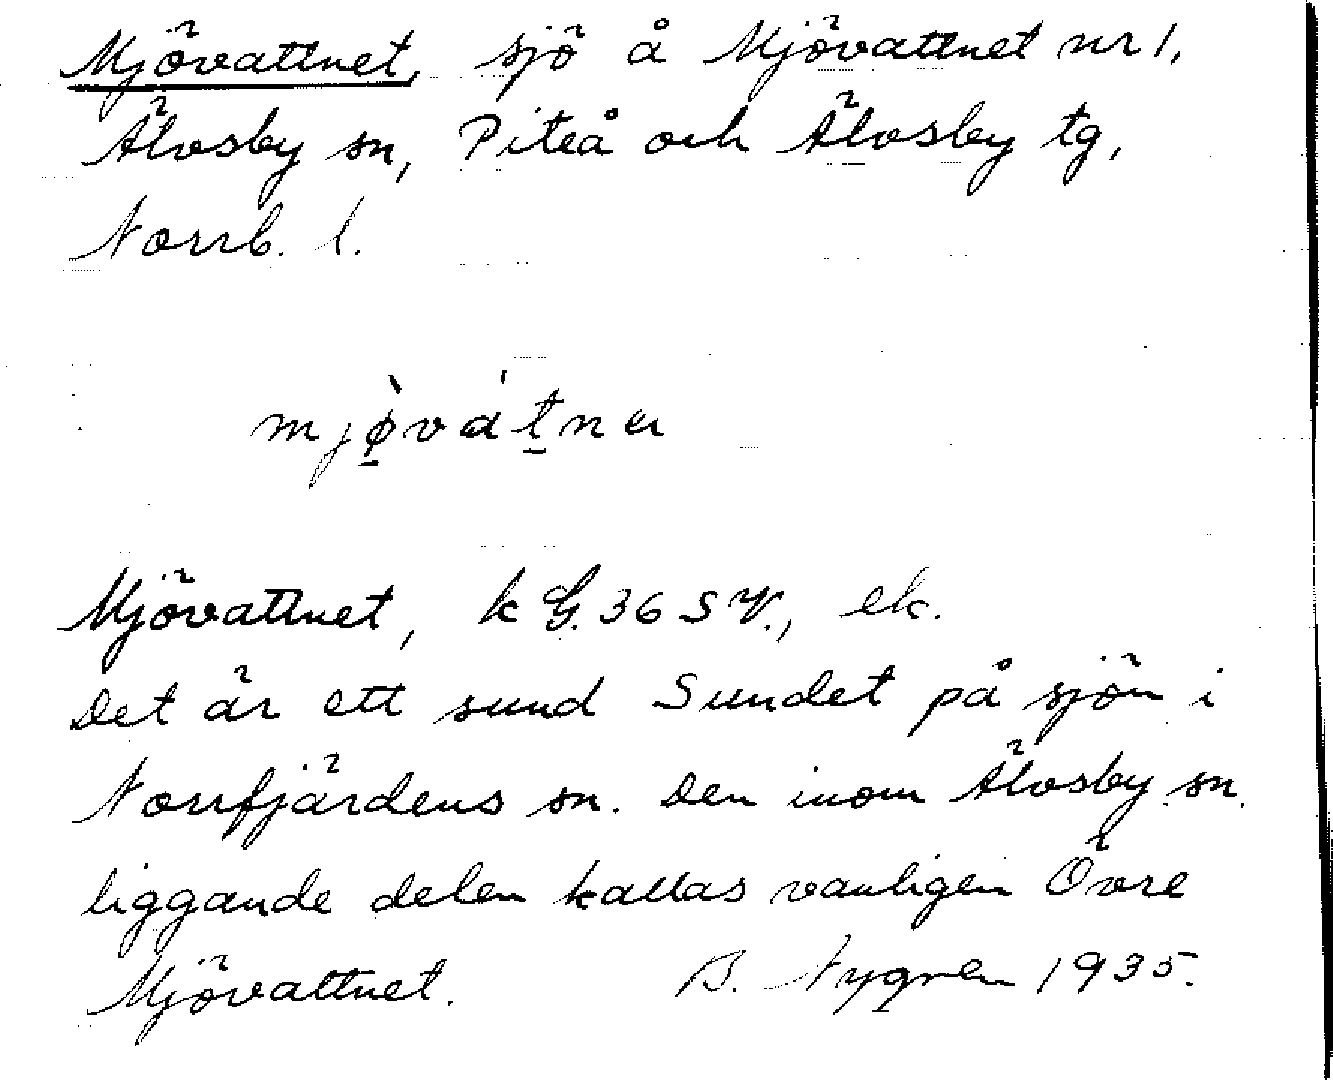 Mjövattnet, sjö å Mjövattnet nr 1,
Älvsby sn, Piteå och Älvsby tg,
Norrb. l.
mjø̀vátnɐ
Mjövattnet, k G. 36 SV., ek.
Det är ett sund Sundet på sjön i
Norrfjärdens sn. Den inom Älvsby sn.
liggande delen kallas vanligen Övre
Mjövattnet. B. Nygren 1935.